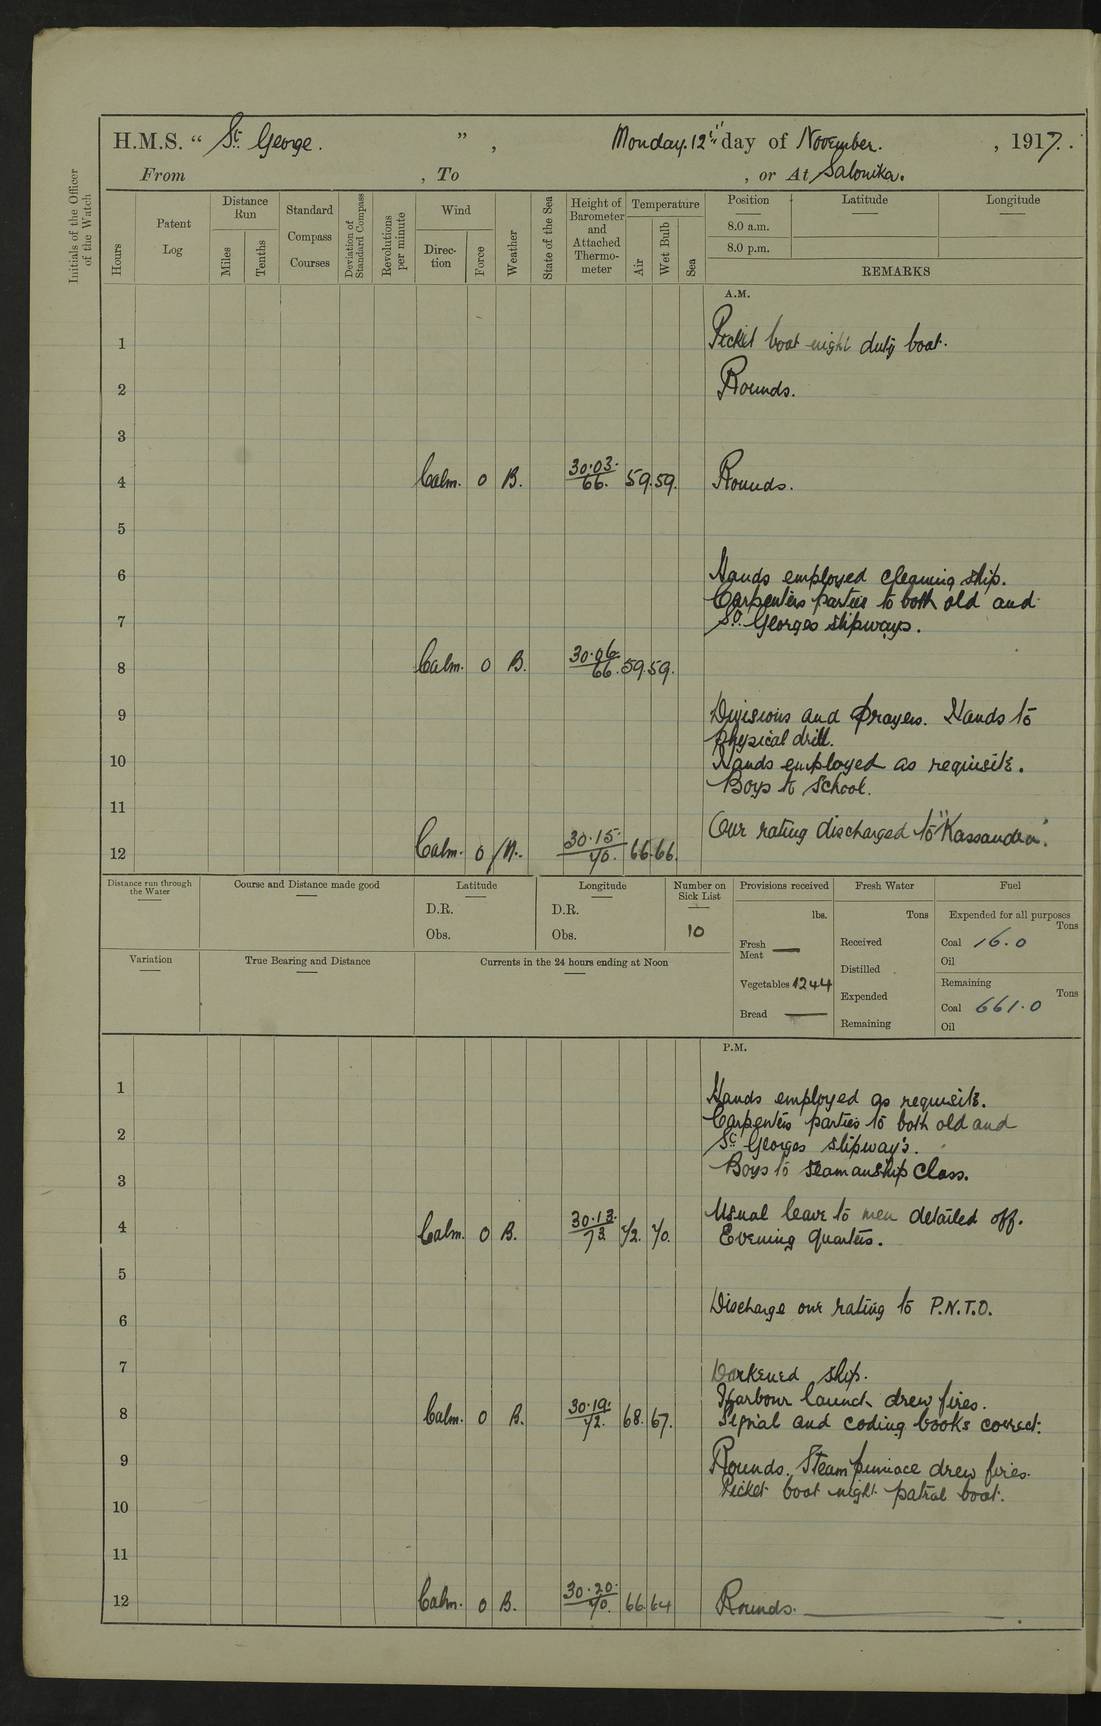 H.M.S. " St. George. " , Monday. 12th day of November. , 1917.
From , To , or At Salonika.
Initials of the Officer of the Watch
Hours
Patent Log
Distance Run
Miles
Tenths
Standard Compass Courses
Deviation of Standard Compass
Revolutions per minute
Wind
Direction
Force
Weather
State of the Sea
Height of Barometer and Attached Thermometer
Temperature
Air
Wet Bulb
Sea
Position Latitude Longitude
8.0 a.m.
8.0 p.m.
REMARKS
A.M.
1 Picket boat night duty boat.
2 Rounds.
3
4 Calm. 0 B. 30.03. 66. 59. 59. Rounds.
5
6 Hands employed cleaning ship.
Carpenters parties to both old and
7 St. Georges slipways.
8 Calm. 0 B. 30.06. 66. 59. 59.
9 Divisions and Prayers. Hands to
physical drill.
10 Hands employed as requisite.
Boys to School.
11
Our rating discharged to "Kassandra".
12 Calm. 0 30.15. 70. 66. 66.
Distance run through the Water
Course and Distance made good
Latitude
D.R.
Obs.
Longitude
D.R.
Obs.
Number on Sick List
10
Provisions received
lbs.
Fresh Meat —
Vegetables 1244
Bread —
Fresh Water
Tons
Received
Distilled
Expended
Remaining
Fuel
Expended for all purposes
Tons
Coal 16.0
Oil
Remaining
Tons
Coal 661.0
Oil
Variation
True Bearing and Distance
Currents in the 24 hours ending at Noon
P.M.
1 Hands employed as requisite.
Carpenters parties to both old and
2 St. Georges slipway's.
3 Boys to Seamanship Class.
Usual leave to men detailed off.
4 Calm. 0 B. 30.13. 73. 72. 70. Evening quarters.
5
6 Discharge our rating to P.N.T.O.
7 Darkened ship.
Harbour launch drew fires.
8 Calm. 0 B. 30.19. 72. 68. 67. Signal and coding books correct.
9 Rounds. Steam pinnace drew fires.
10 Picket boat night patrol boat.
11
12 Calm. 0 B. 30.20. 70. 66. 64 Rounds.